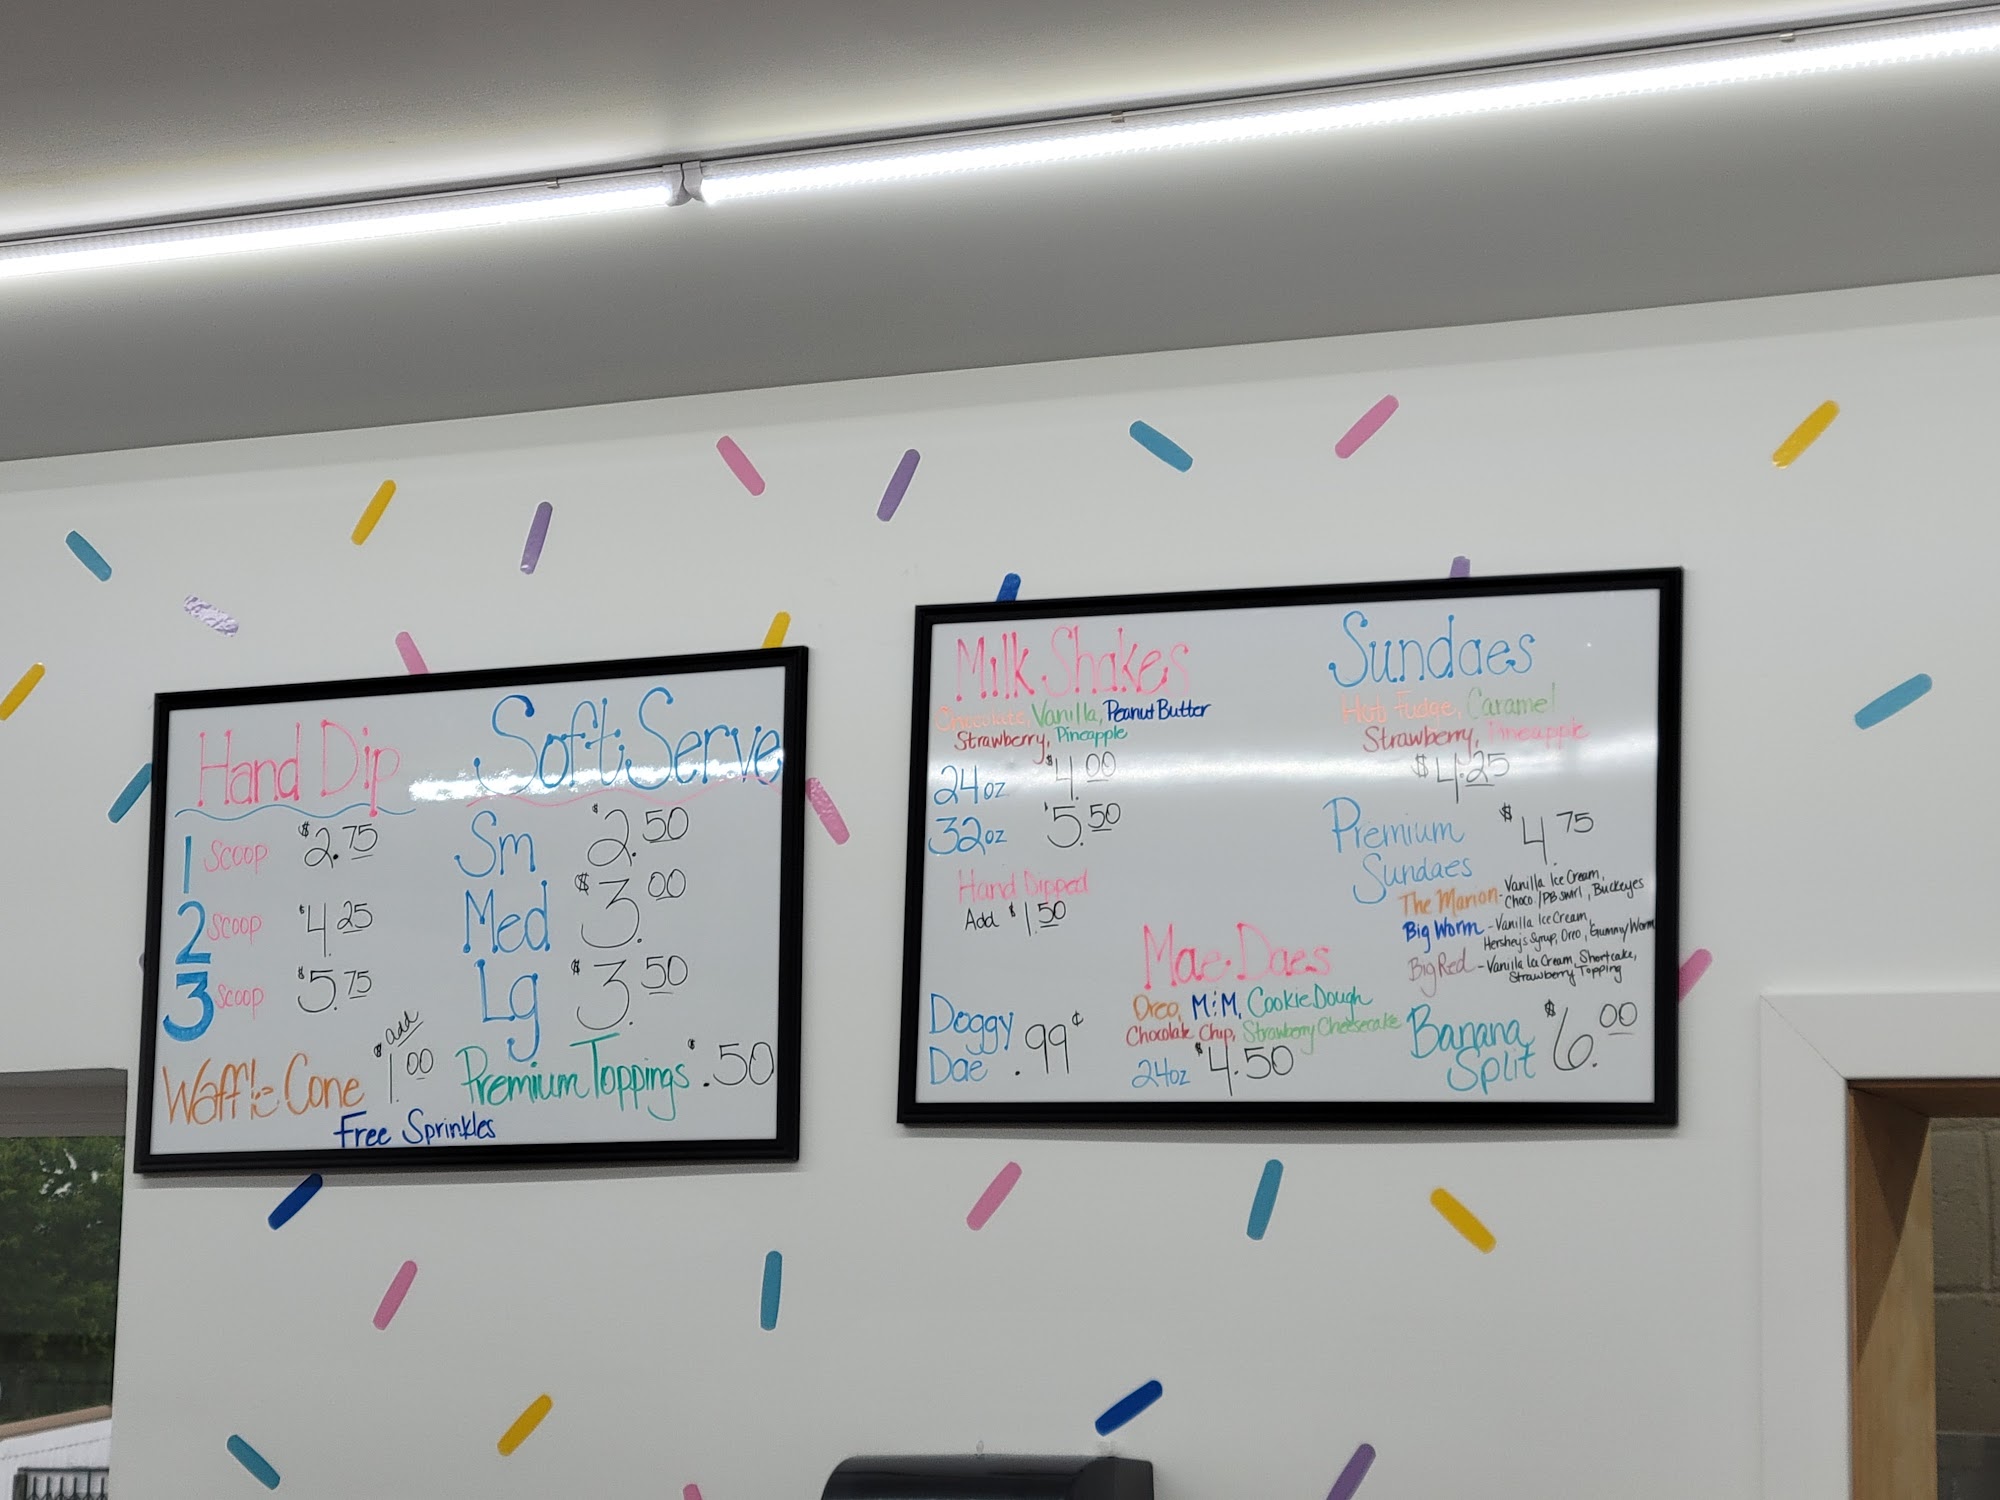 Hand Dip
1 Scoop $2.75
2 Scoop $4.25
3 Scoop $5.75
Waffle Cone add $1.00
Soft Serve
Sm $2.50
Med $3.00
Lg $3.50
Premium Toppings $.50
Free Sprinkles
Milk Shakes
Chocolate, Vanilla, Peanut Butter
Strawberry, Pineapple
24oz $4.00
32oz $5.50
Hand Dipped
Add $1.50
Doggy
Dae .99¢
Mae-Daes
Oreo, M&M, Cookie Dough
Chocolate Chip, Strawberry Cheesecake
24oz $4.50
Sundaes
Hot Fudge, Caramel
Strawberry, Pineapple
$4.25
Premium $4.75
Sundaes
The Marion - Vanilla Ice Cream,
Choco./PB swirl, Buckeyes
Big Worm - Vanilla Ice Cream,
Hershey's Syrup, Oreo, Gummy Worm
Big Red - Vanilla Ice Cream, Shortcake,
Strawberry Topping
Banana $6.00
Split